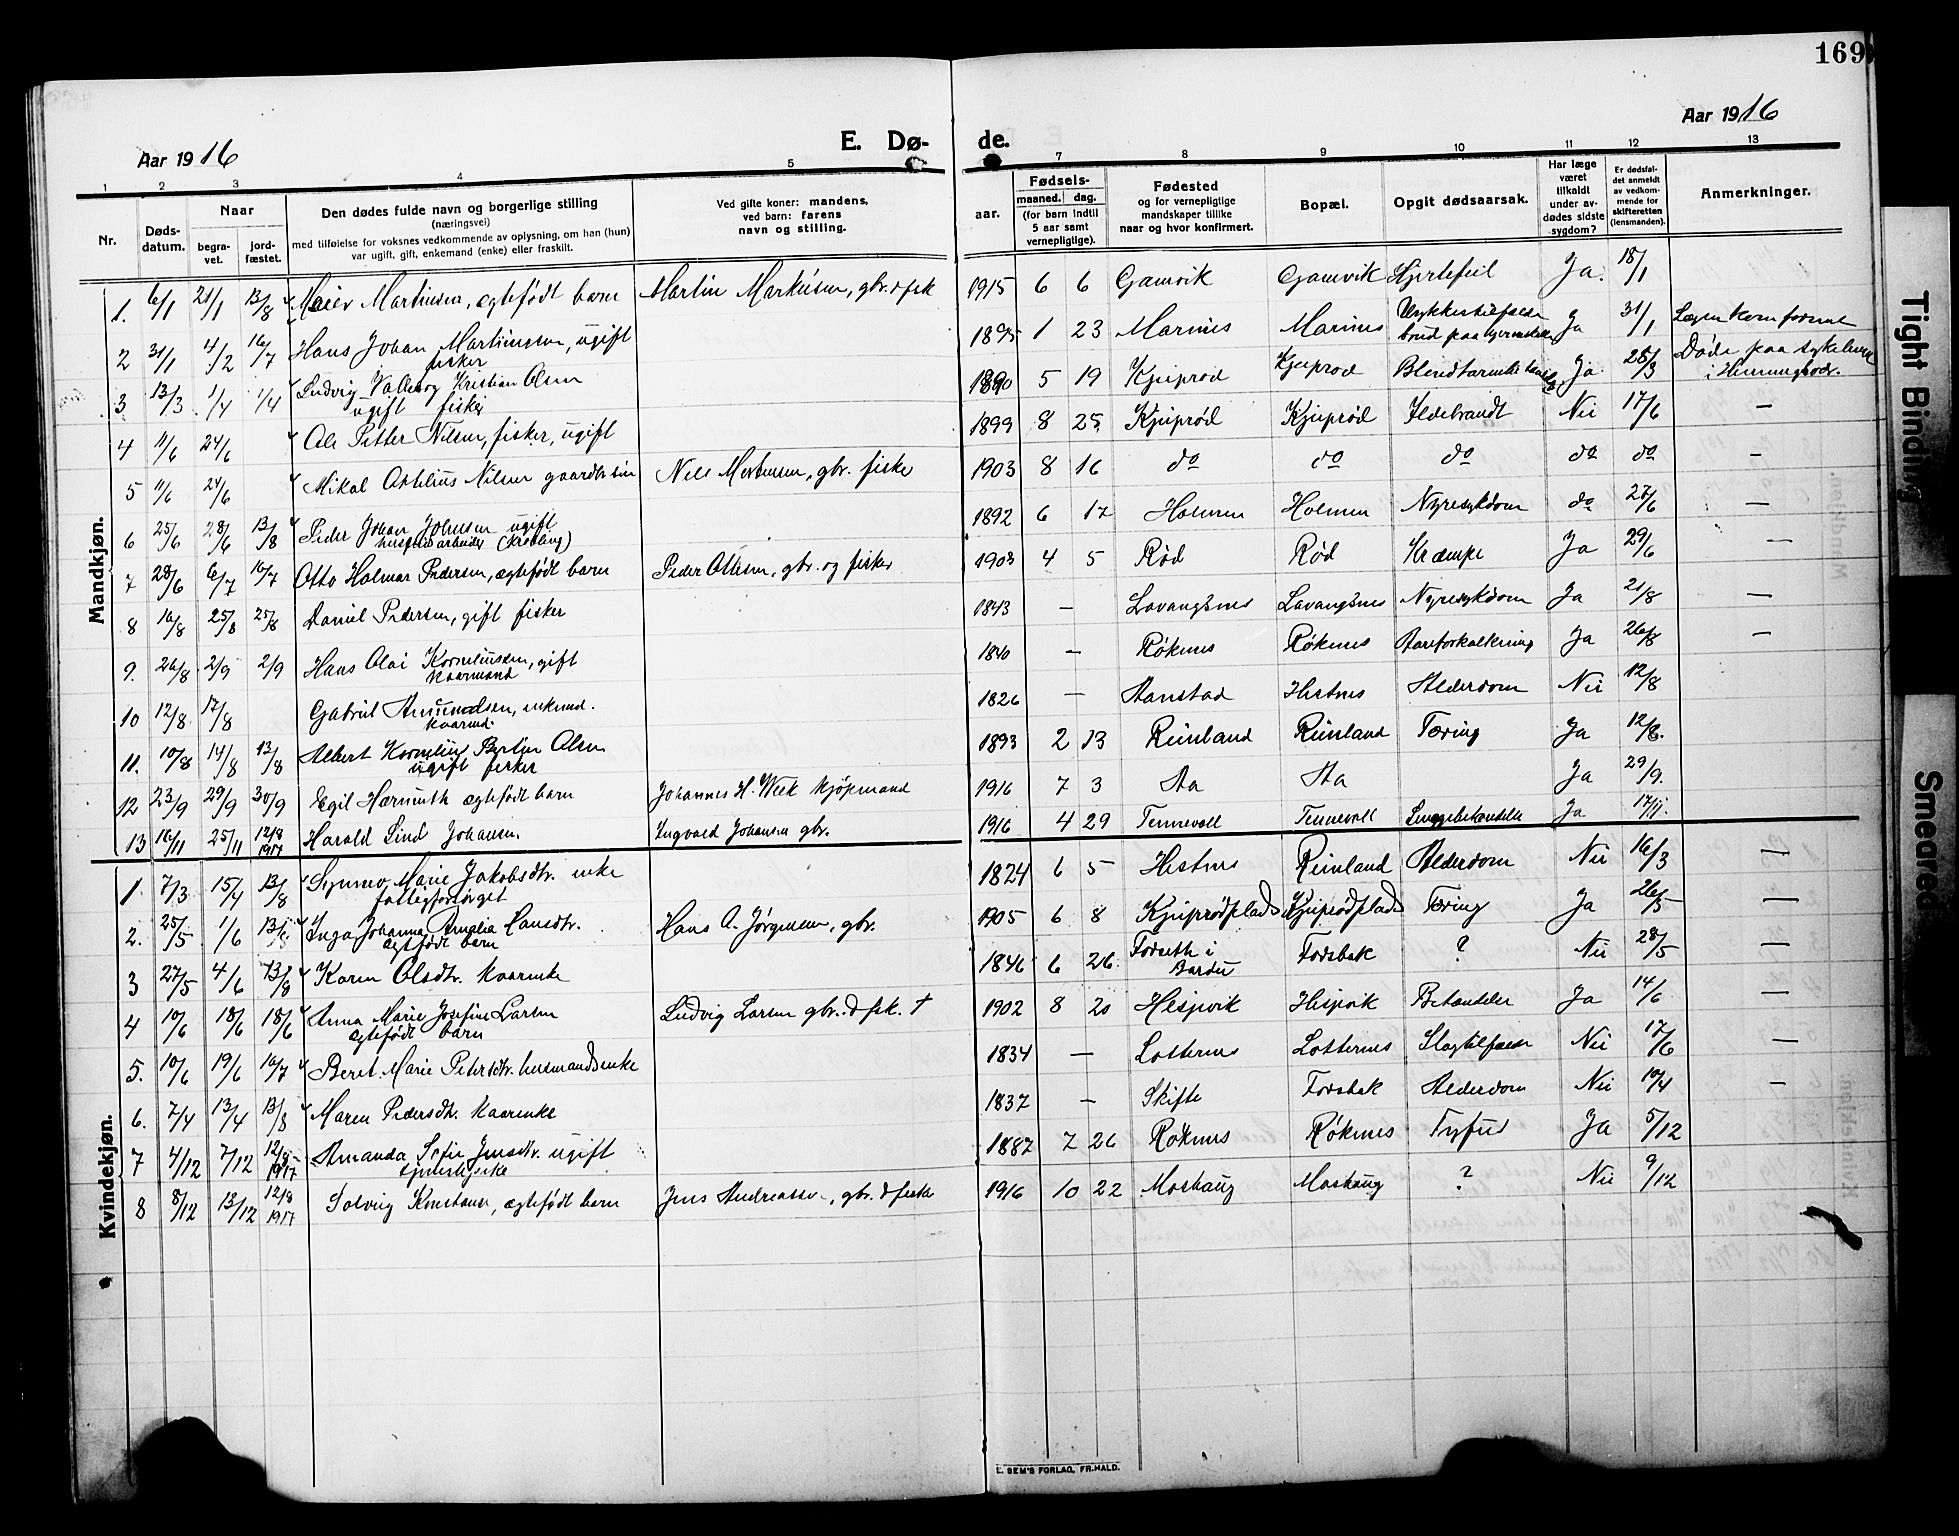 169
Aar 1916
E. Dø-
de.
Aar 1916
1 2 3 4 5 7 8 9 10 11 12 13
Nr.
Døds-
datum.
Naar
begra-
vet.
jord-
fæstet.
Den dødes fulde navn og borgerlige stilling
(næringsvei)
med tilføielse for voksnes vedkommende av oplysning, om han (hun)
var ugift, gift, enkemand (enke) eller fraskilt.
Ved gifte koner: mandens,
ved barn: farens
navn og stilling.
aar.
Fødsels-
maaned. dag.
(for barn indtil
5 aar samt
vernepligtige).
Fødested
og for vernepligtige
mandskaper tillike
naar og hvor konfirmert.
Bopæl.
Opgit dødsaarsak.
Har læge
været
tilkaldt
under av-
dødes sidste
sygdom?
Er dødsfal-
det anmeldt
av vedkom-
mende for
skifteretten
(lensmanden).
Anmerkninger.
Mandkjøn.
1. 6/1 21/1 13/8 Meier Martinsen, egtefødt barn Martin Markusen, gbr. & fsk 1915 6 6 Gamvik Gamvik Hjertefeil Ja. 18/1
2 31/1 4/2 16/7 Hans Johan Martinussen, ugift
fisker 1895 1 23 Marines Marines Ja 31/1
3 13/3 1/4 1/4 Ludvig Valeborg Kristian Olsen
ugift fisker 5 19 Kjeiprød Kjeiprod Ja. 28/3 Døde paa sykehuset
4 11/6 24/6 Ole Petter Nilsen, fisker, ugift 1899 8 25 Kjeiprød Kjeiprød Ildebrandt Nei 17/6 —
5 11/6 24/6 Mikal Nilsen Nils Mortensen, gbr. fisker 1903 8 16 do do do do do —
6 25/6 28/6 13/8 Peder Johan Johnsen ugift
(Krøbling) 1892 6 17 Holmen Holmen Nyresykdom do 27/6 —
7 28/6 6/7 16/7 Otto Holmar Pedersen, egtefødt barn Peder Ottesen, gbr. og fisker 1903 4 5 Rød Rød Krampe Ja 29/6 —
8 16/8 25/8 25/8 Daniel Pedersen, gift fisker 1843 — Lavangsnes Lavangsnes Nyresykdom Ja 21/8 —
9. 26/8 2/9 2/9 Hans Olai Korneliussen, gift
kaarmand 1840 — Røknes Røknes Aareforkalkning Ja 26/8 —
10 12/8 17/8 Gabriel Amundsen, enkemd.
kaarmd. 1826 — Aanstad Hestnes Alderdom Nei 12/8
11. 10/8 14/8 13/8 Albert Kornelius Olsen
ugift fisker 1893 2 13 Reinland Reinland Tæring Ja 12/8.
12 23/9 29/9 30/9 Egil egtefødt barn Johannes H. Week kjøpmand 1916 7 3 Aa Aa Ja 29/9.
13 16/11 25/11 12/8 1917 Harald Lind Johansen Ingvald Johansen gbr. 1916 4 29 Tennevoll Tennevoll Lungebetændelse Ja 17/11.
Kvindekjøn.
1 7/3 15/4 13/8 Marie Jakobsdtr. enke
fattigforsørget 1824 6 5 Hestnes Reinland Alderdom Nei 16/3 —
2. 25/5 1/6 13/8 Inga Johanna Amalia Hansdtr.
egtefødt barn Hans A. Jørgensen, gbr. 1905 6 8 Kjeiprødplads Kjeiprødplads Tæring Ja 26/5 —
3 27/5 4/6 13/8 Karen Olsdtr. kaarenke 1846 6 26 Forseth i
Bardu Fodsbak ? Nei 28/5 —
4 10/6 18/6 18/6 Anna Marie Josefine Larsen
egtefødt barn Ludvig Larsen gbr. & fsk. † 1902 8 20 Hesjevik Hesjevik Betændelse Ja 14/6 —
5. 10/6 19/6 16/7 Beret Marie Petersdtr. husmandsenke 1834 — Lotternes Lotternes Slagtilfælde Nei 17/6 —
6. 7/4 13/4 13/8 Maren Pedersdtr. kaarenke 1837 — Skifte Fodsbak Alderdom Nei 10/4 —
7 4/12 7/12 12/8 1917 Amanda Sofie Jensdtr. ugift
tjenestepike 1887 7 26 Røknes Røknes Tyfus Ja 5/12
8 8/12 13/12 12/8 1917 Solveig Konstanse, egtefødt barn Jens Andreassen, gbr. & fisker 1916 10 22 Moshaug Moshaug ? Nei 9/12
E. SEM'S FORLAG, FR.HALD.
Tight Binding
Smeared